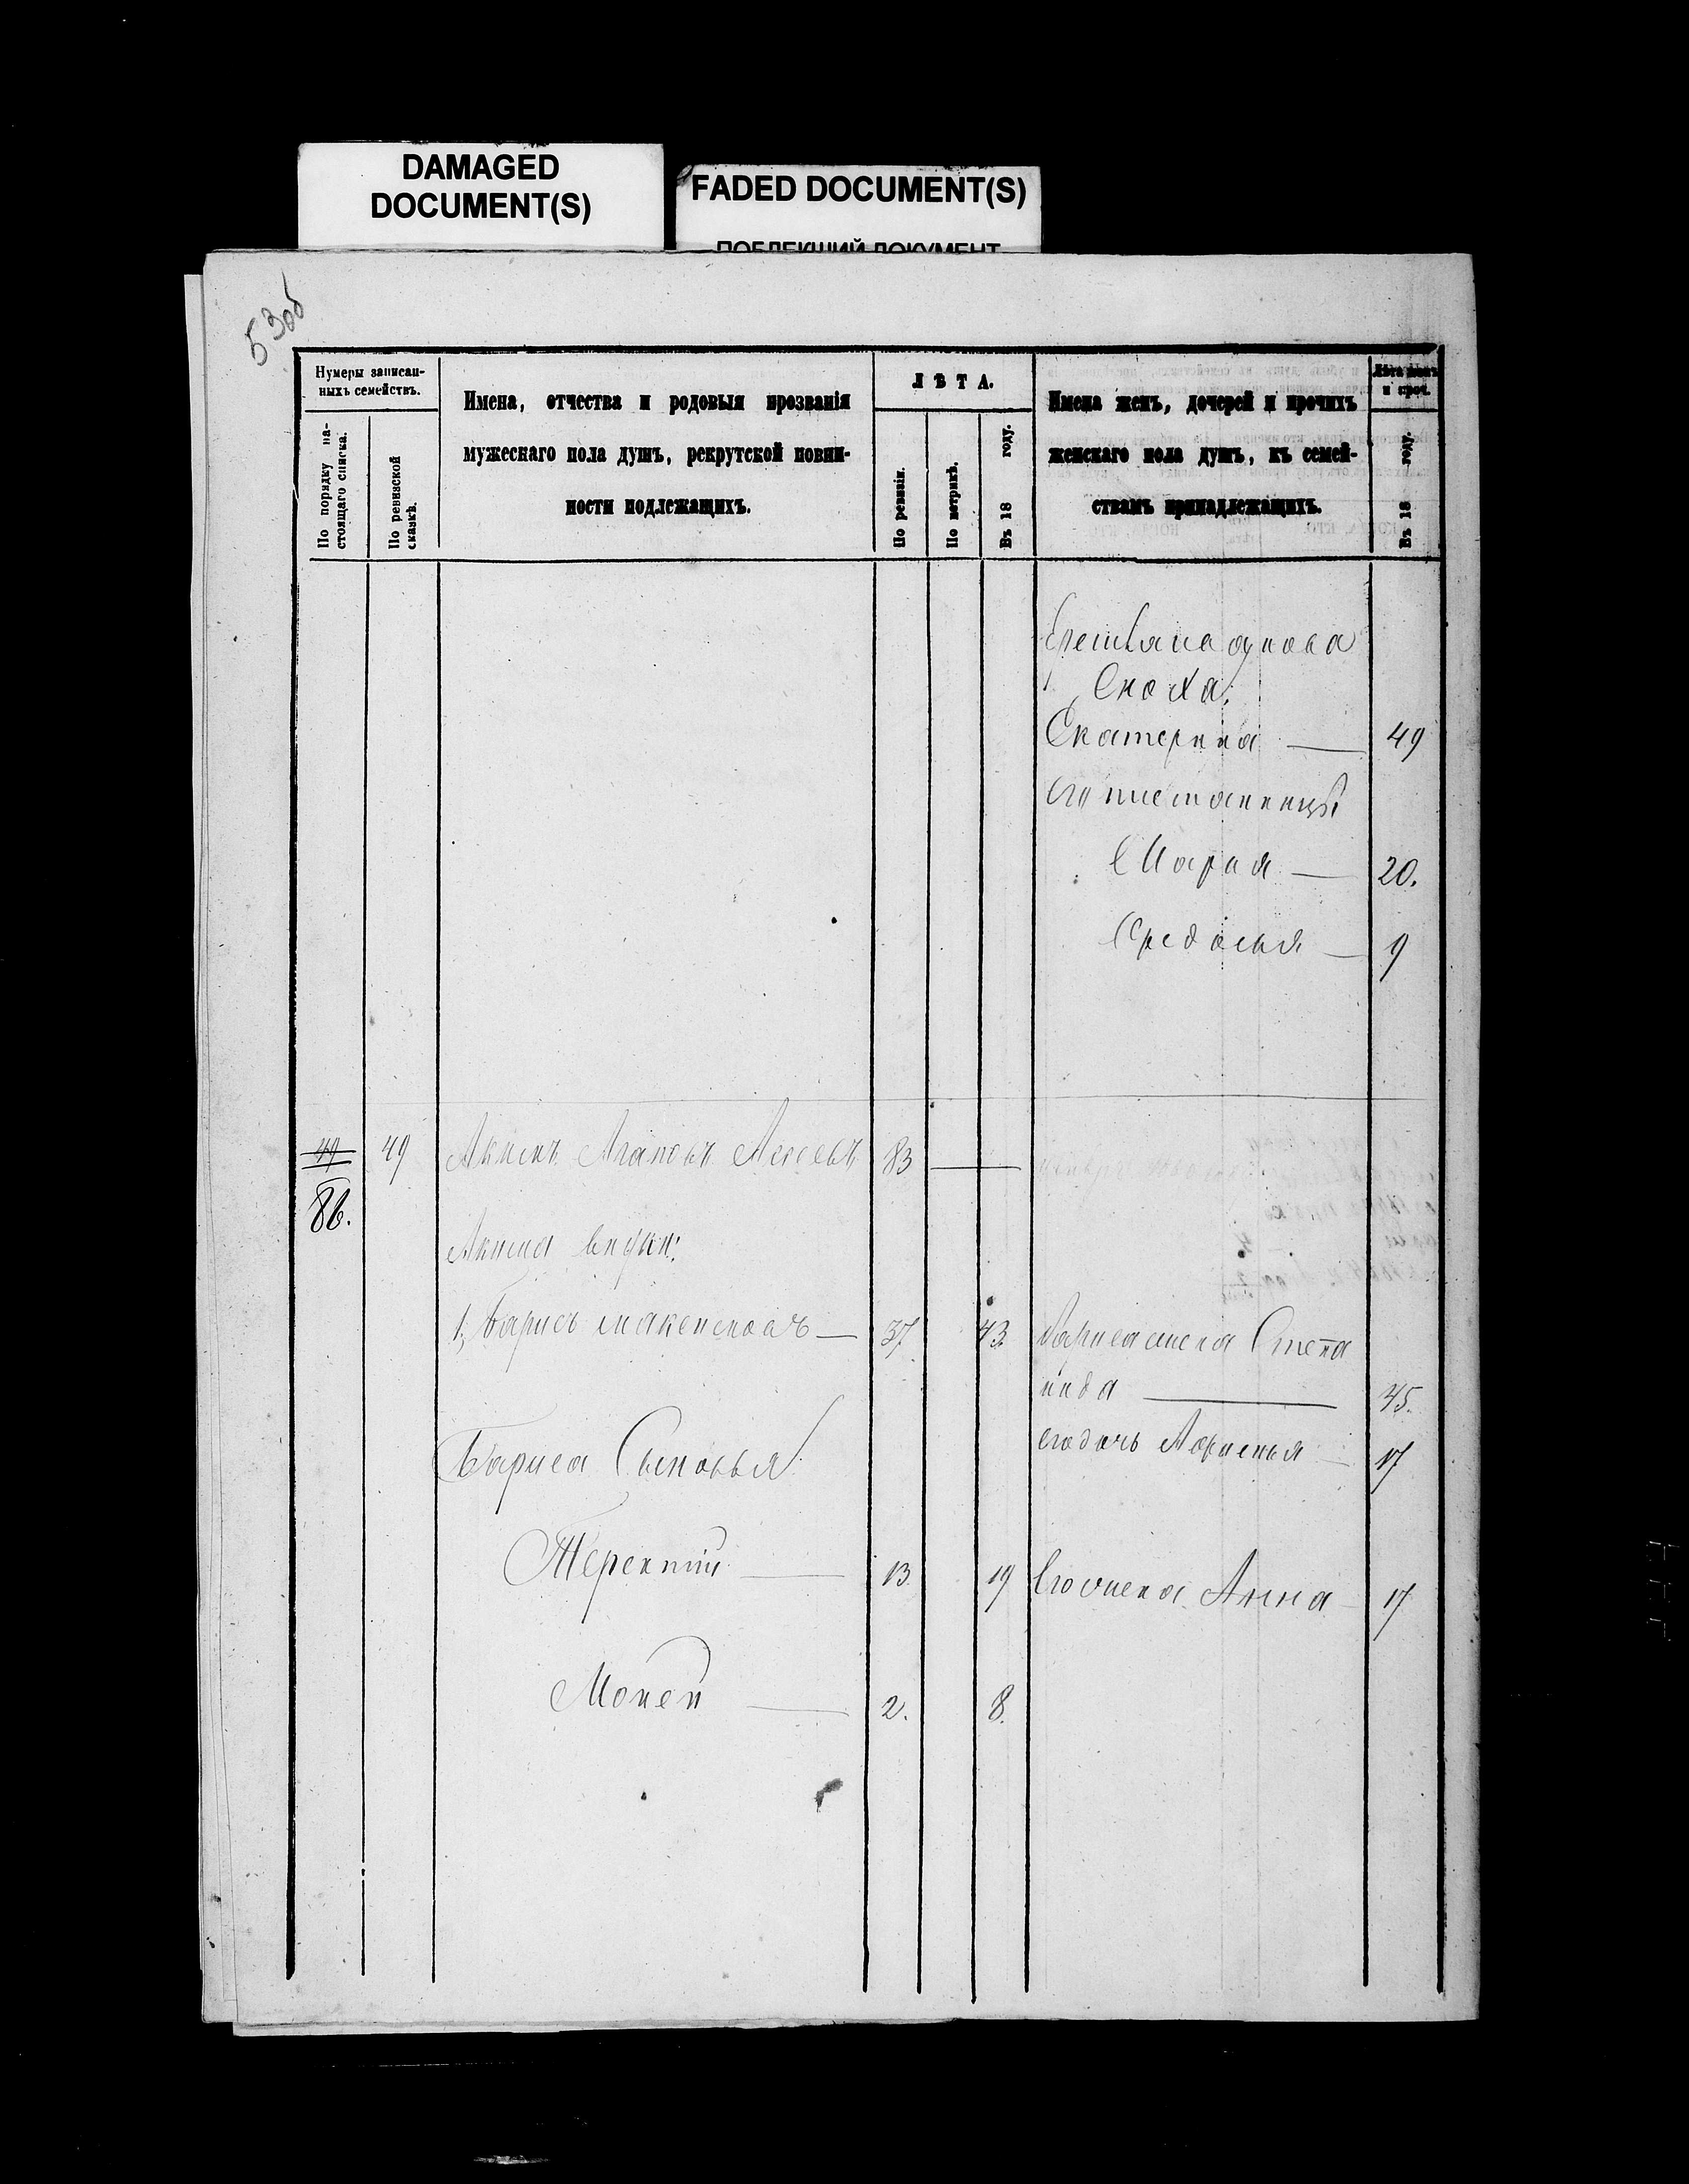 DAMAGED
DOCUMENT(S)
FADED DOCUMENT(S)
ПОБЛЕКШИЙ ДОКУМЕНТ
53об
Нумеры записан-
ныхъ семействъ.
По порядку на-
стоящаго списка.
По ревизской
сказкѣ.
Имена, отчества и родовыя прозванія
мужескаго пола душъ, рекрутской повин-
ности подлежащихъ.
ЛѢТА.
По ревизіи.
По метрикѣ.
Въ 18 году.
Имена женъ, дочерей и прочихъ
женскаго пола душъ, къ семей-
ствамъ принадлежащихъ.
Лѣта женъ
и проч.
Въ 18 году.
Сноха
Екатерина 49
Марія 20.
Федосья 9
49 49 Акимъ Агаповъ 83
86.
Акима внуки:
1, Борисъ 37 43 Борисаж жена Степа
нида 45.
Бориса Сыновья его дочь 17
Терентий 13 19 Его жена Анна 17
Мокей 2. 8.